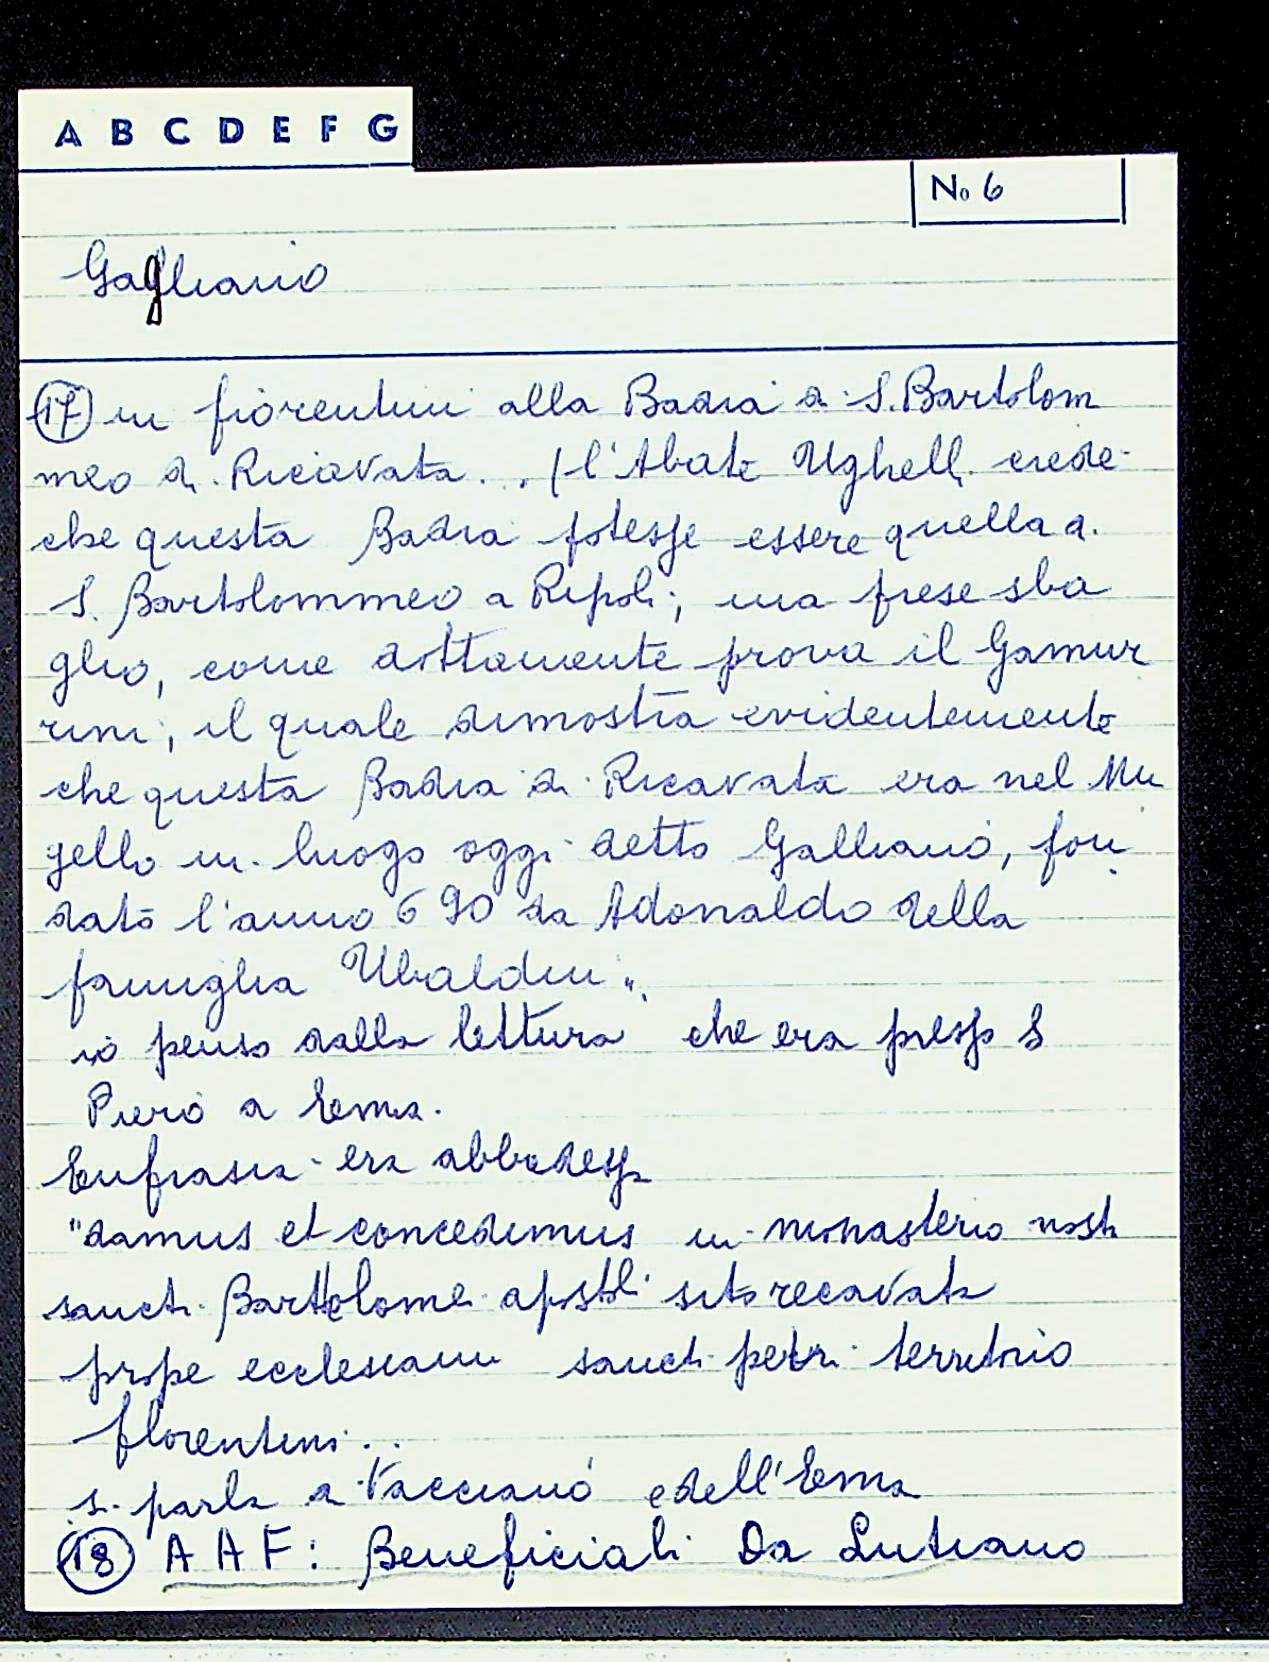 A B C D E F G
No 6
Gagliano
17 in fiorentini alla Badia di S. Bartolom
meo di Ricavata... (l'Abate Ughelli crede
che questa Badia potesse essere quella di
S. Bartolommeo a Ripoli; ma prese sba
glio, come dottamente prova il Gamur
rini, il quale dimostra evidentemente
che questa Badia di Ricavata era nel Mu
gello in luogo oggi detto Galliano, fon
dato l'anno 690 da Adonaldo della
famiglia Ubaldini".
io penso dalla lettura che era presso S
Piero a Ema.
Eufrasia era abbadessa
"damus et concedimus in monasterio nostri
sancti Bartolomei apostoli sito recavata
prope ecclesiam sancti petri territorio
florentini...
si parla di Vacciano e dell'Ema
18 A A F: Beneficiali Da Lutiano